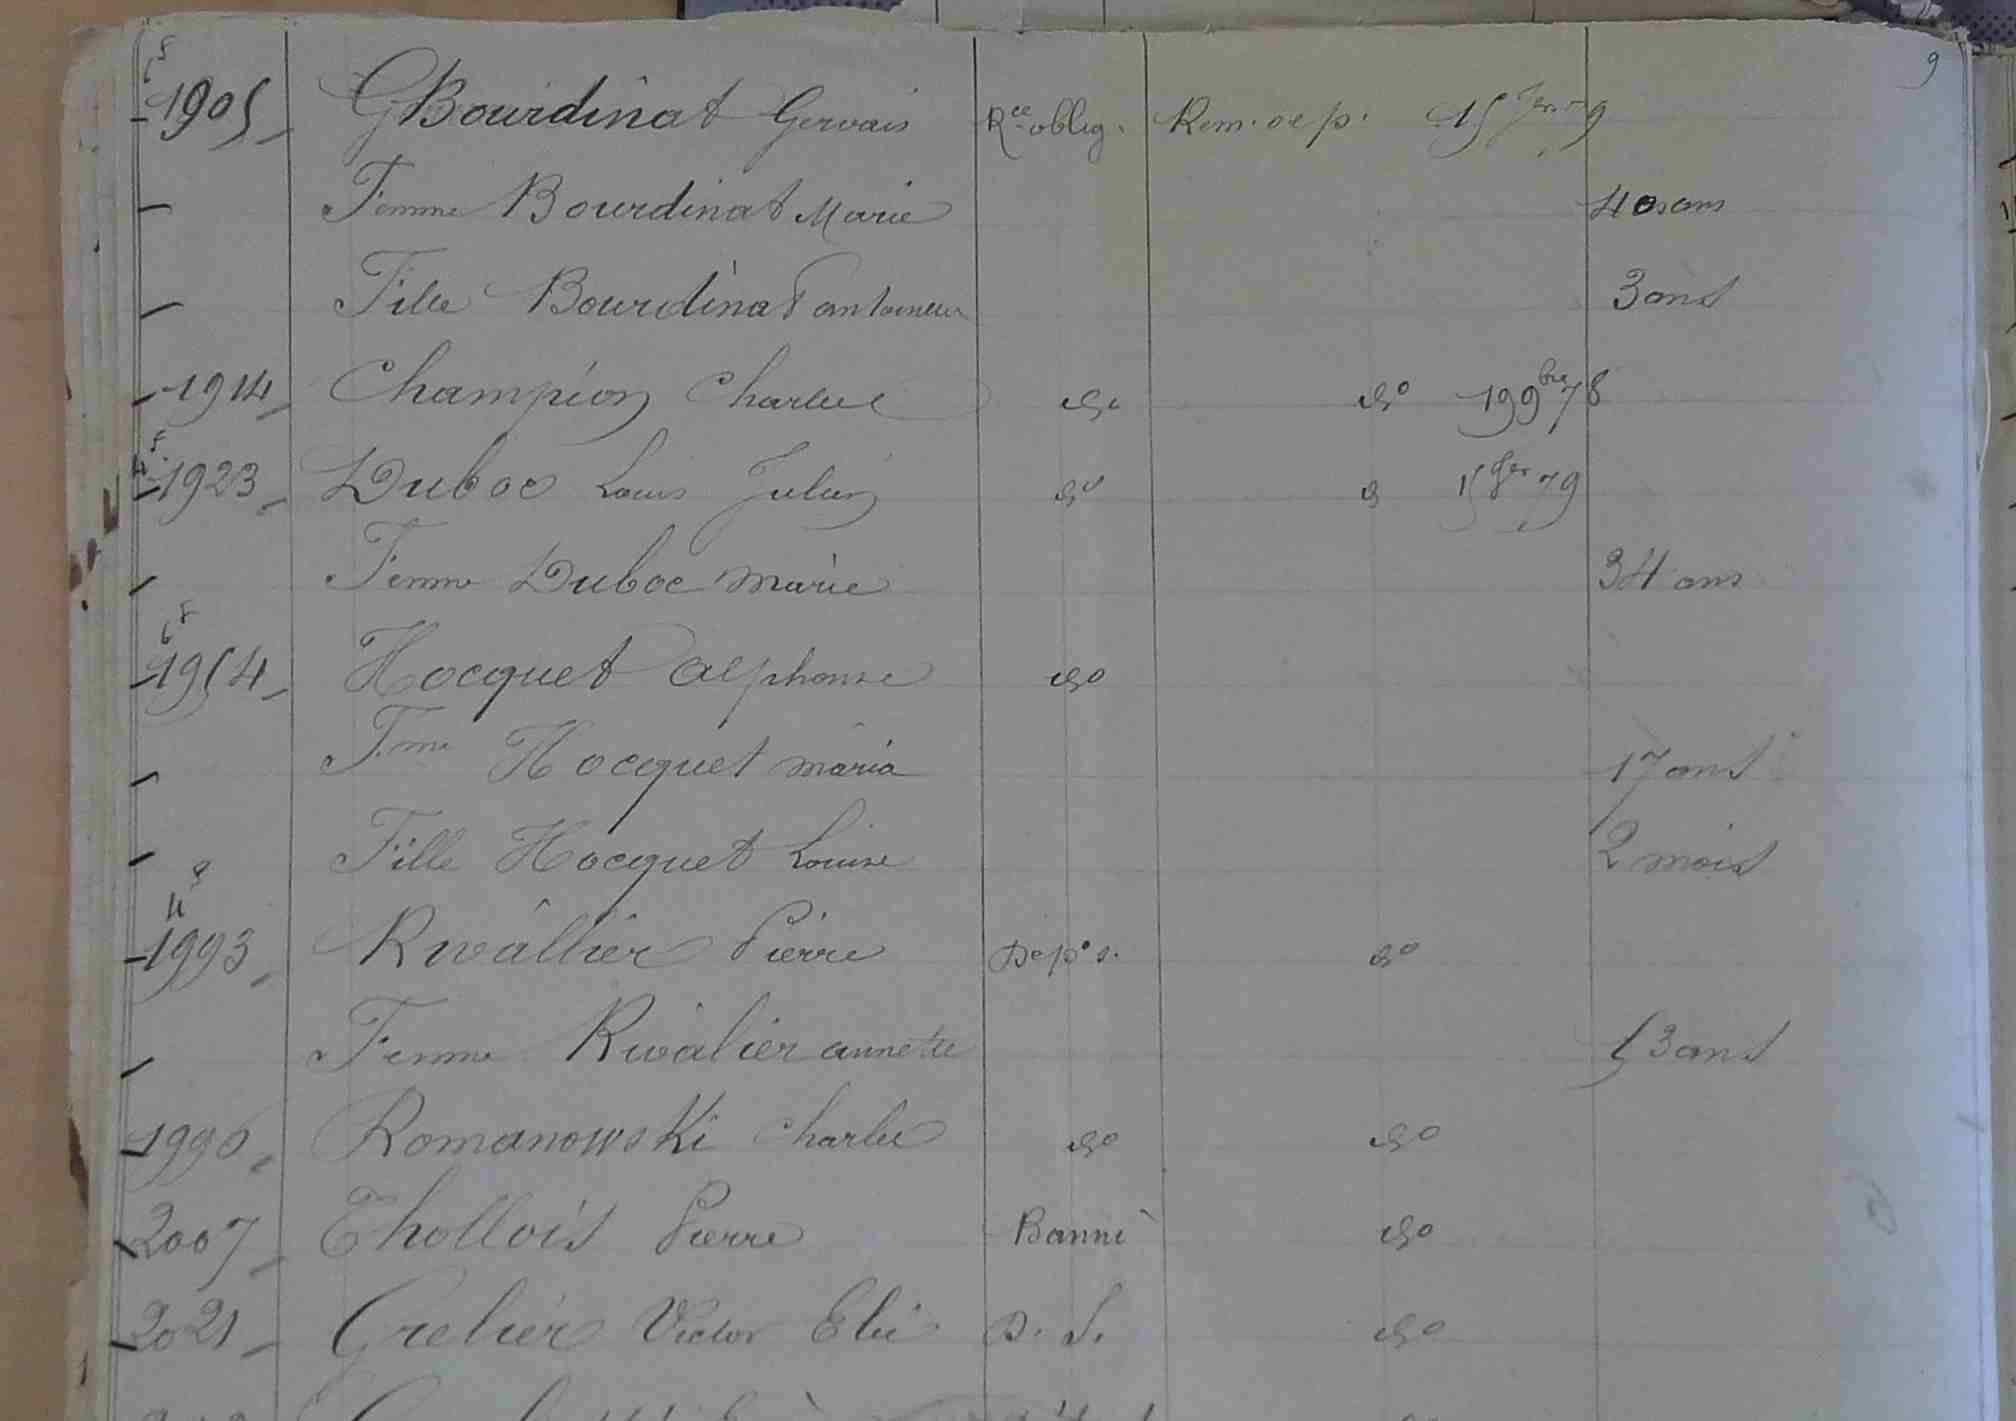 9
1905 GBourdinat Gervais Rce oblig. Rem. dep. 15 Jer 79
Femme Bourdinat Marie 40 ans
Fille Bourdinat antoinette 3 ans
1914 Champion Charles do do 19 9bre 78
1923 Duboc Louis Julien do d 15 Jer 79
Femme Duboc marie 34 ans
1954 Hocquet alphonse do
Fme Hocquet maria 17 ans
Fille Hocquet Louise 2 mois
1993 Rivallier Pierre Dep. s. do
Femme Rivalier annette 53 ans
1996 Romanowski Charles do do
2007 Thollois Pierre Banni do
2021 Grelier Victor Elie D. S. do